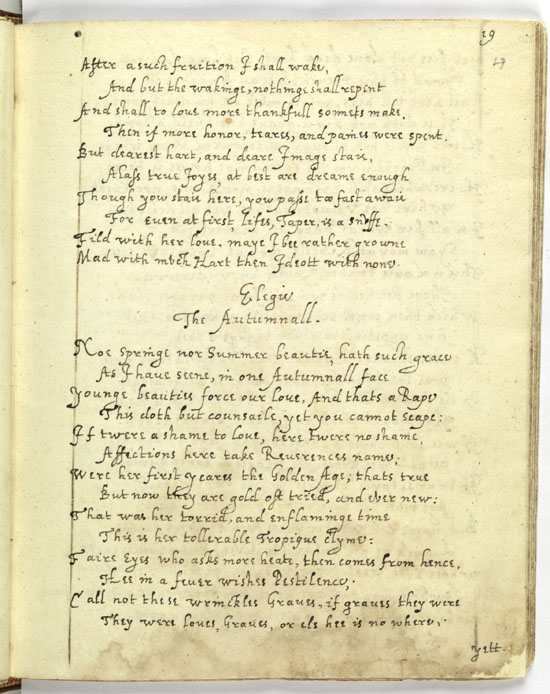 19
After a such fruition I shall wake,
And but the wakinge, nothinge shall repent
And shall to loue more thankfull sonnets make,
Then if more honor, teares, and paines were spent.
But dearest hart, and deare Image staie,
Alass true Joyes, at best are dreame enough
Though yow staie here, yow pass too fast awaie
For even at first, lifes, Taper, is a snuffe.
Fild with her loue. maye I bee rather growne
Mad with much Hart then Ideott with none.
Elegie
The Autumnall.
Noe Springe nor Summer beautie, hath such grace
As I haue seene, in one Autumnall face
Younge beauties force our loue, And thats a Rape
This doth but counsaile, yet you cannot scape:
If twere a shame to loue, here twere no shame,
Affections here take Reuerences name,
Were her first yeares the Golden Age; thats true
But now they are gold oft tried, and ever new:
That was her torrid, and enflaminge time
This is her tollerable Tropique clyme:
Faire Eyes who asks more heate, then comes from hence,
Hee in a feuer wishes Pestilence,
Call not these wrinckles Graues, if graues they were
They were Loues, Graues, or els hee is no where,
yett.